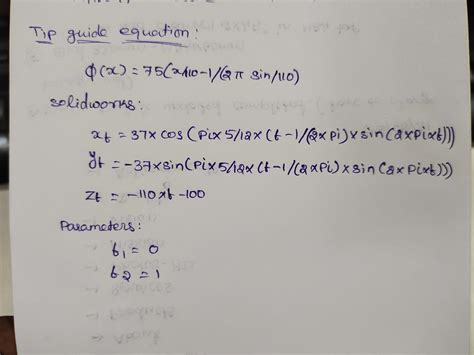 Tip guide equation:
ϕ(x) = 75(x/110-1/(2π sin/110)
Solidworks:
xt = 37×cos(Pi×5/12×(t-1/(2×Pi)×sin(2×Pi×t)))
yt = -37×sin(Pi×5/12×(t-1/(2×Pi)×sin(2×Pi×t)))
zt = -110×t-100
Parameters:
t1 = 0
t2 = 1